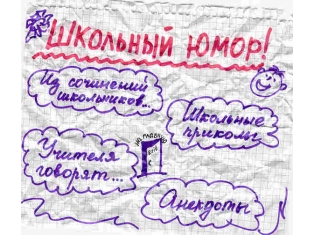 ШКОЛЬНЫЙ ЮМОР!
Из сочинений
школьников...
Школьные
приколы
НА ГЛАВНУЮ
Учителя
говорят...
Анекдоты